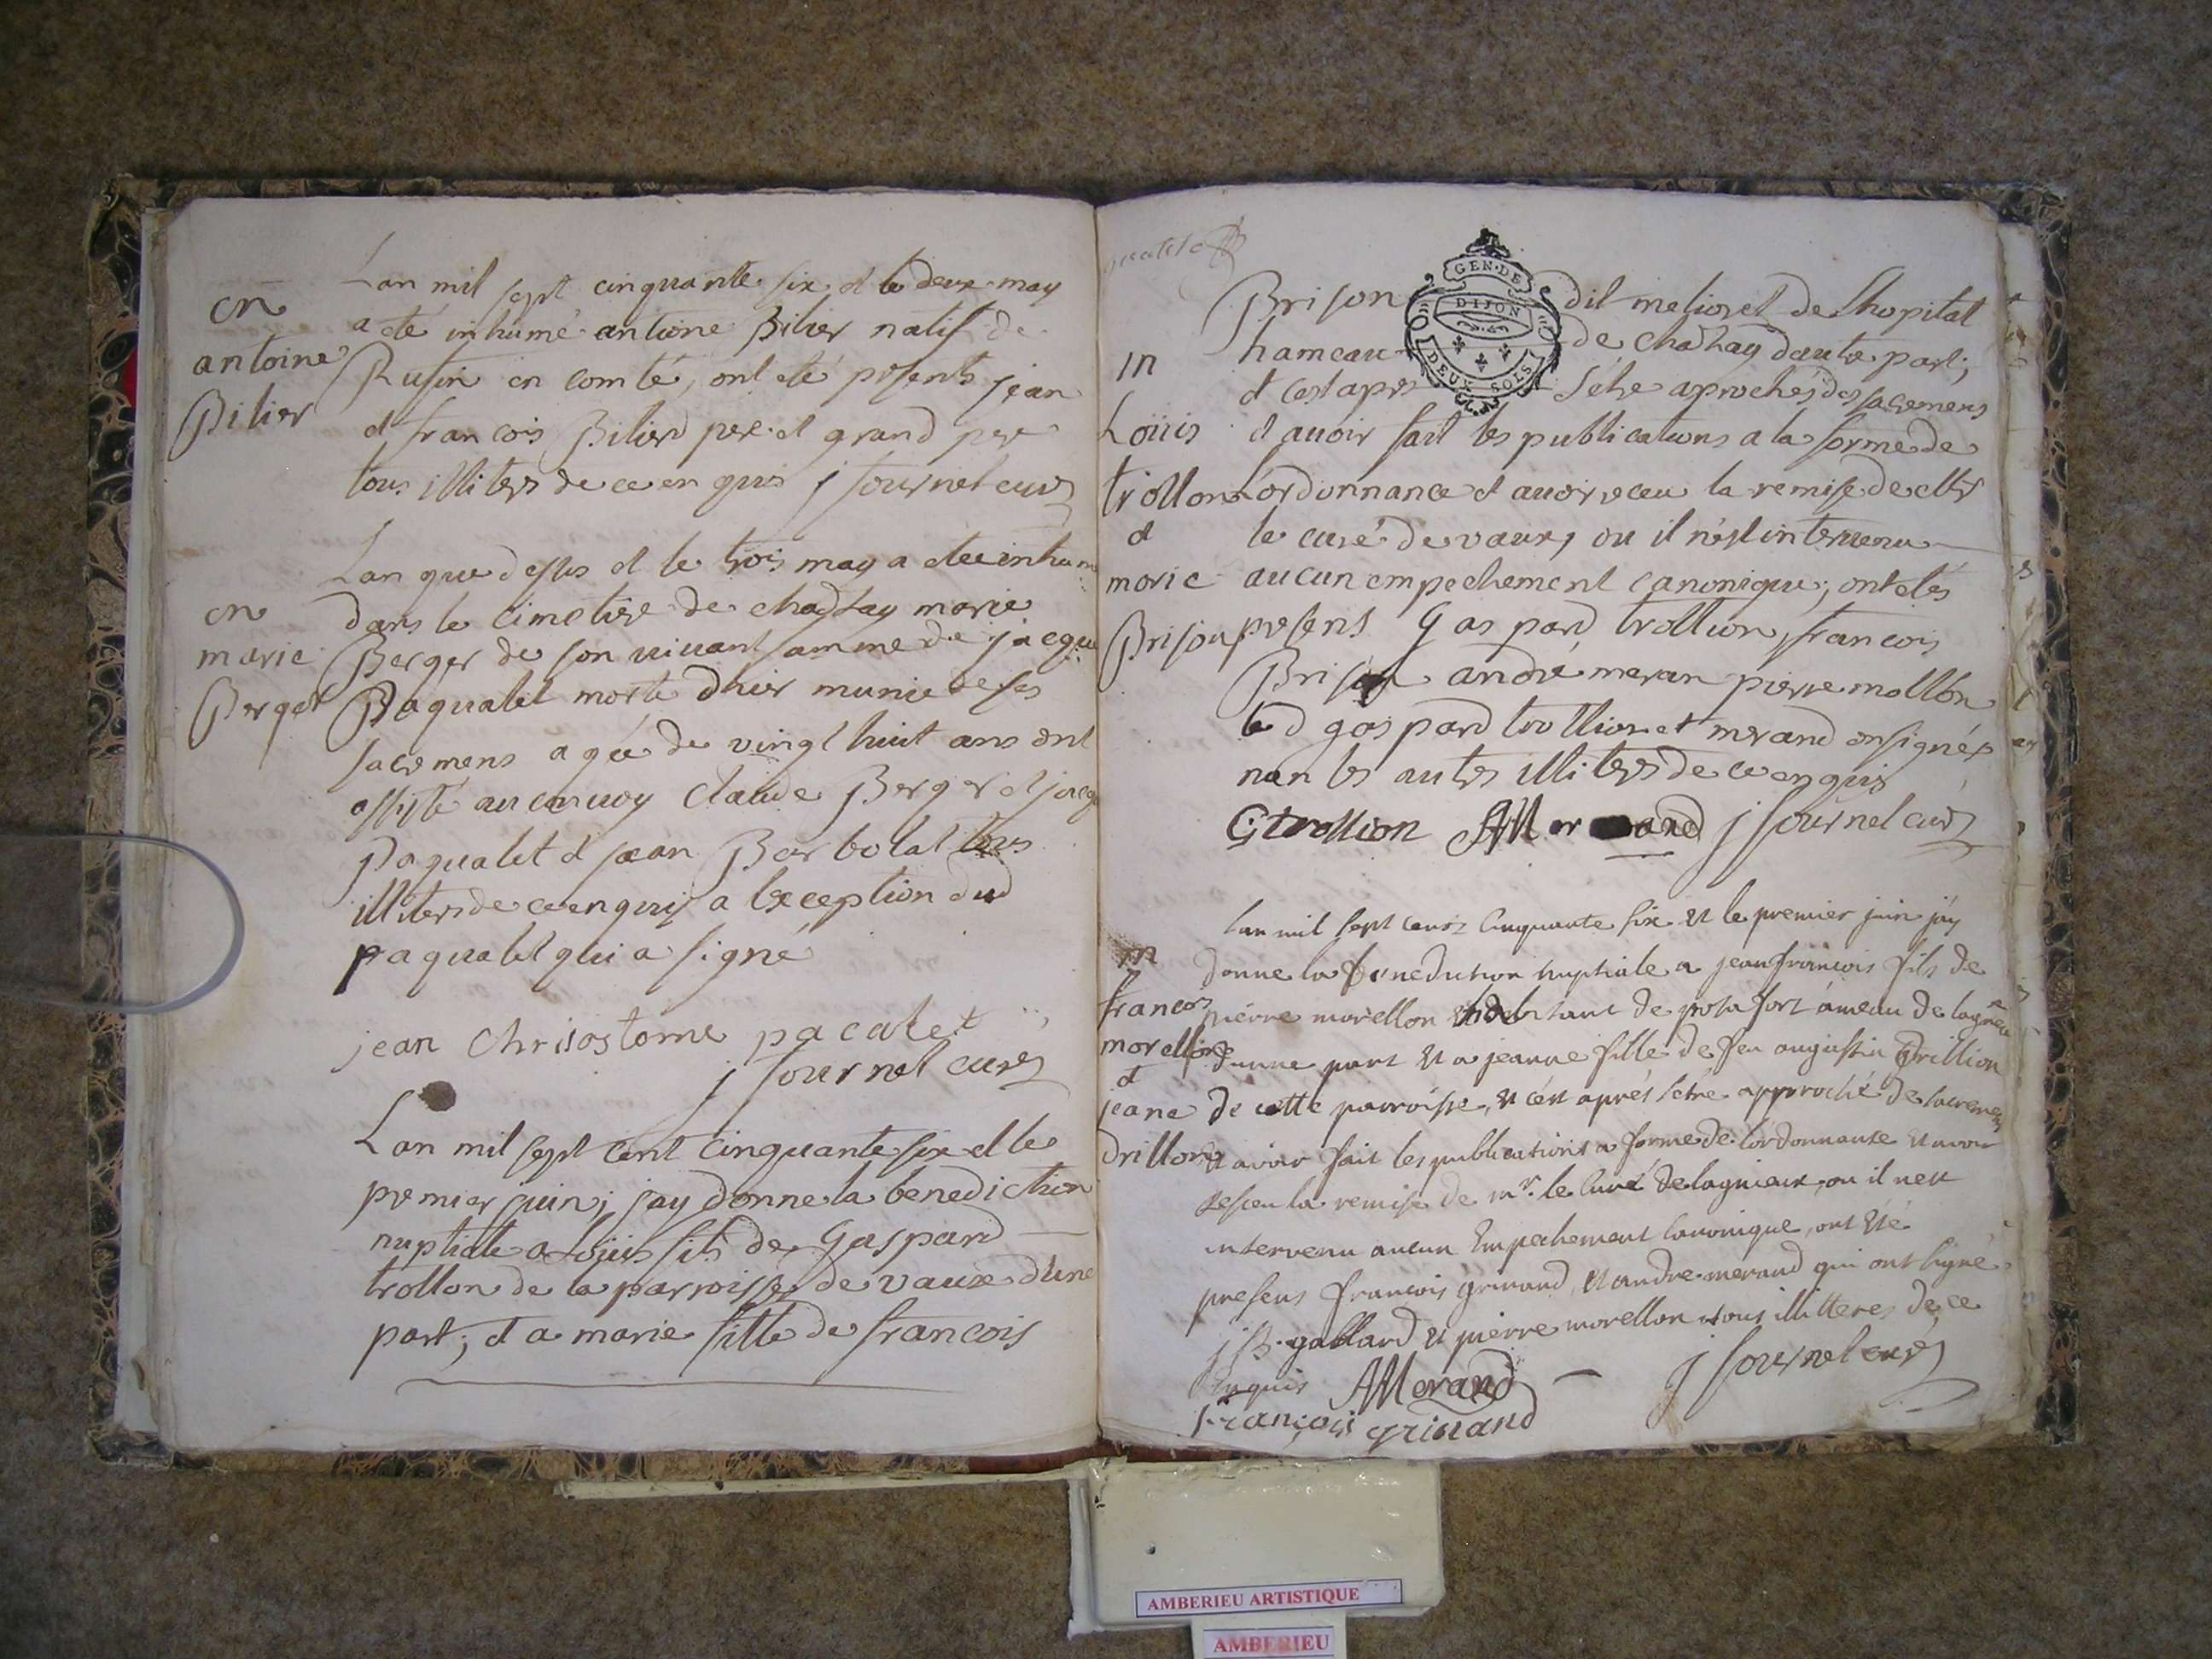 en
antoine
Bilier
Lan mil sept cinquante six et le deux may
a eté inhumé antoine Bilier natif de
Rufin en comté, ont eté presents jean
et francois Bilierd pere et grand pere
tous illiters de ce enquis j fournel curé
en
marie
Berger
Lan que dessus et le trois may a etee inhum
dans le cimetire de chazay marie
Berger de son vivant famme de jacque
Paqualet morte dhier munie de ses
sacremens agée de vingt huit ans ont
assisté au convoy Claude Berger et jacq
Paqualet et jean Berbolat tous
illiters de ce enquis a lexception dud
paqualet qui a signé
jean Chrisostome pacalet
j fournel curé
Lan mil sept cent cinquante six et le
premier juin j jay donne la benediction
nuptiale a Loüis fils de Gaspard
trollon de la parroisse de vaux dune
part; et a marie fille de francois
Brison dit melioret de Lhopital
GEN·DE
DIJON
DEUX SOLS
hameau de chazay dautre part;
et cest apres sétre aprochés des sacremens
in
Loüis
trollon
et
marie
Brison
et auoir fait les publications a la forme de
Lordonnance et auoir receu la remise de Mr
le curé de vaux, ou il nést interuenu
aucun empechement canonique; ont etés
presens Gaspard trollion, francois
Brison andré meran pierre mollon
led gaspard trollion et merand on signés
non les autres illiters de ce enquis
G: trollion AMerand j fournel curé
m
francois
morellon
et
jeane
Drillon
Lan mil sept cens Cinquante six et le premier juin j'ay
donne la benediction nuptiale a jean francois fils de
pierre morellon habitant de posafort ámeau de lagnieu
dunne part et a jeanne fille de feu augustin Drillion
de cette parroisse, et cést aprés sétre approché de sacremens
et avoir fait les publications a forme de lordonnance et avoir
resceu la remise de mr. le Curé de lagnieux, ou il nest
intervenu aucun Empechement Canonique, ont été
presens francois grinand, et andre merand qui ont signé
j B. gallard et pierre morellon tous illitteres de ce
Enquis AMerand j fournel curé
François grinand
AMBERIEU ARTISTIQUE
AMBERIEU